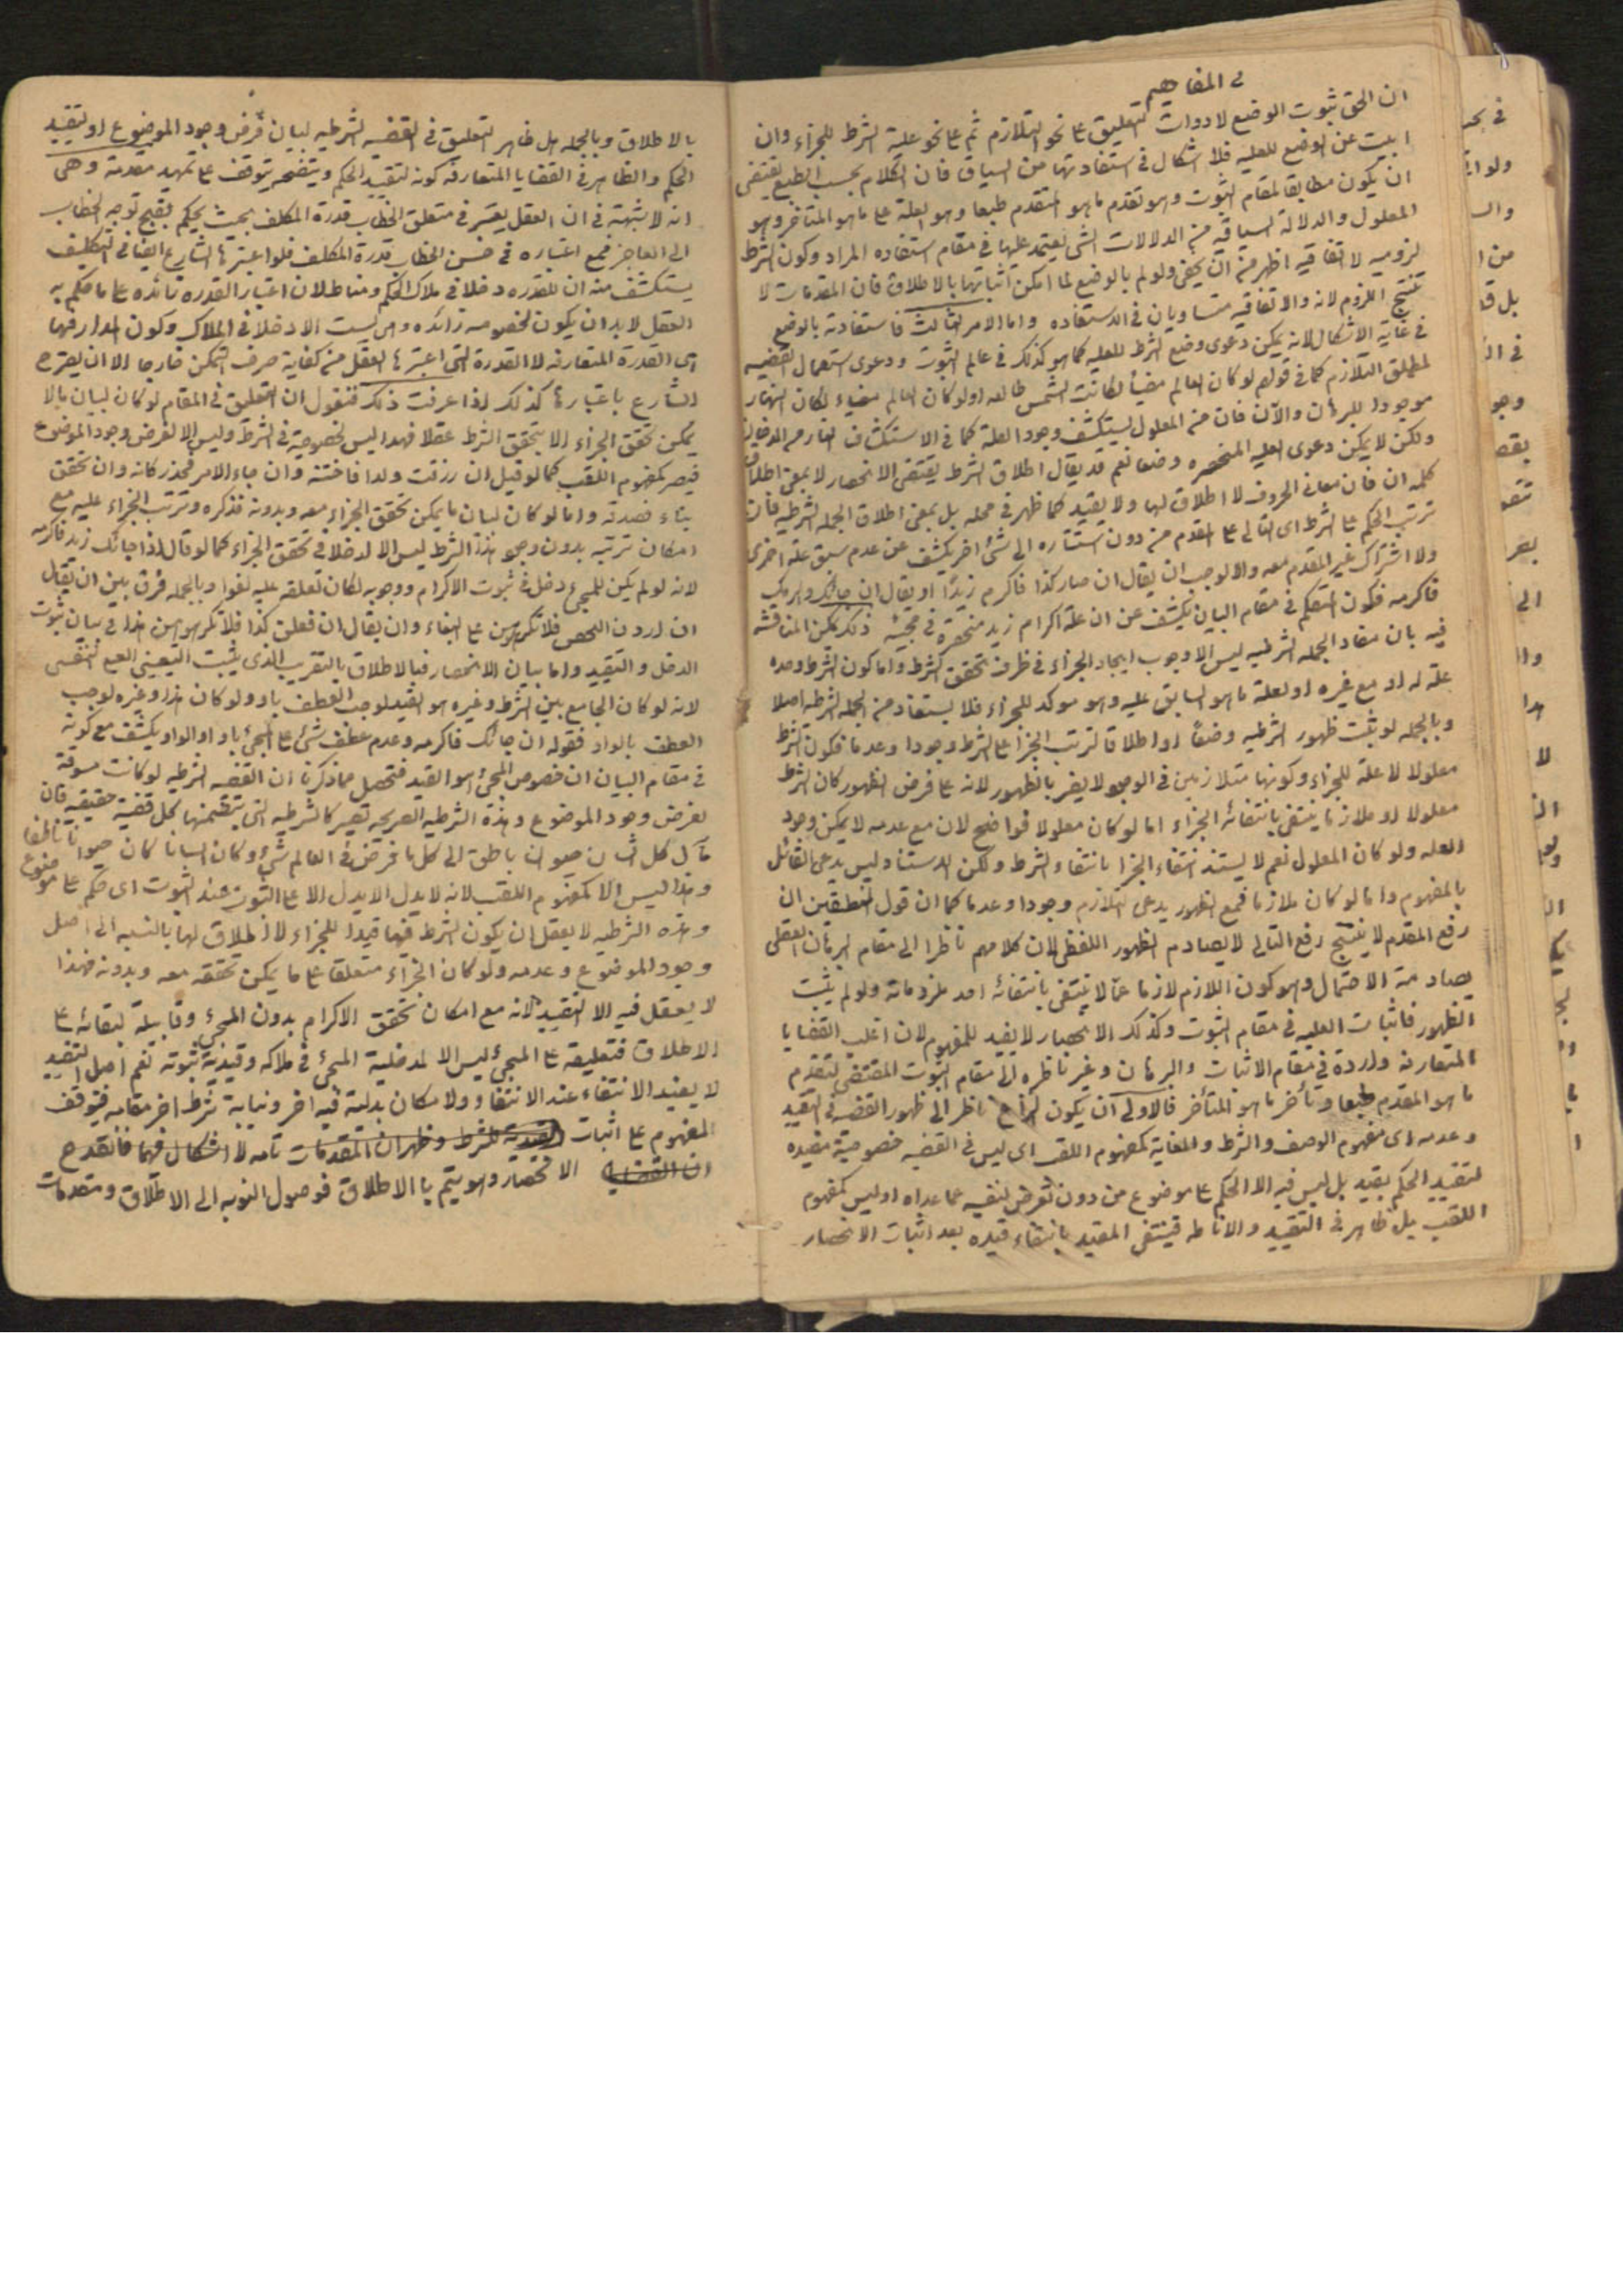 فى المفاهيم
ان الحق ثبوت الوضع لادوات التعليق على نحو التلازم ثم على نحو علية الشرط للجزاء وان
ابيت عن الوضع للعلية فلا اشكال فى استفادتها من السياق فان الكلام بحسب الطبع يقتضى
ان يكون مطابقا لمقام الثبوت وهو تقدم ما هو المتقدم طبعا وهو العلة على ما هو المتاخر وهو
المعلول والدلالة السياقية من الدلالات التى يعتمد عليها فى مقام استفاده المراد وكون الشرط
لزوميه لا تفاقيه اظهر من ان يخفى ولو لم بالوضع لما امكن اثباتها بالاطلاق فان المقدمات لا
تنتج اللزوم لانه والاتفاقيه متساويان فى الاستفاده واما الامر الثالث فاستفادته بالوضع
فى غاية الاشكال لانه يمكن دعوى وضع الشرط للعليه كما هو كذلك فى عالم الثبوت ودعوى استعمال القضيه
لمطلق التلازم كما فى قولهم لو كان العالم مضيئا لكانت الشمس طالعه او لو كان العالم مضيء لكان النهار
موجودا للبرهان والآن فان من المعلول يستكشف وجود العلة كما فى الاستكشاف النار من الدخان
ولكن لا يمكن دعوى العليه المنحصره وضعا نعم قد يقال اطلاق الشرط يقتضى الانحصار لا بمعنى اطلاق
كلمة ان فان معانى الحروف لا اطلاق لها ولا تقييد كما ظهر فى محله بل بمعنى اطلاق الجمله الشرطيه فان
ترتب الحكم على الشرط اى التالى على المقدم من دون استناده الى شئ اخر يكشف عن عدم سبق علة اخرى
ولا اشتراك غير المقدم معه والا لوجب ان يقال ان صار كذا فاكرم زيدا او يقال ان جائك
فاكرمه فكون المتكلم فى مقام البيان يكشف عن ان علة اكرام زيد منحصرة فى مجيئه ذلك يمكن المناقشه
فيه بان مفاد الجمله الشرطيه ليس الا وجوب ايجاد الجزاء فى ظرف تحقق الشرط واما كون الشرط وحده
علة له او مع غيره او لعلة ما هو السابق عليه وهو موكد للجزاء فلا يستفاد من الجمله الشرطيه اصلا
وبالجمله لو ثبت ظهور الشرطيه وضعا او اطلاقا لترتب الجزا على الشرط وجودا وعدما فكون الشرط
معلولا لا علة للجزاء وكونها متلازمين فى الوجود لا يضر بالظهور لانه على فرض الظهور كان الشرط
معلولا او ملازما ينتفى بانتفائه الجزاء اما لو كان معلولا فواضح لان مع عدمه لا يمكن وجود
العله ولو كان المعلول نعم لا يستند انتفاء الجزا بانتفاء الشرط ولكن الاستناد ليس بدعى القائل
بالمفهوم واما لو كان ملازما فمع الظهور يدعى التلازم وجودا وعدما كما ان قول المنطقين ان
رفع المقدم لا ينتج رفع التالى لا يصادم الظهور اللفظى لان كلامهم ناظرا الى مقام البرهان العقلى
بصادمة الاحتمال وهو كون اللازم لازما عما لا ينتفى بانتفائه احد ملزوماته ولو لم يثبت
الظهور فاثبات العليه فى مقام الثبوت وكذلك الانحصار لا يفيد للمفهوم لان اغلب القضايا
المتعارفه واردة فى مقام الاثبات والبرهان وغير ناظره الى مقام الثبوت المقتضى لتقدم
ما هو المقدم طبعا وتأخر ما هو المتأخر فالاولى ان يكون النزاع ناظر الى ظهور القضيه فى التقييد
وعدمه اى مفهوم الوصف والشرط والغاية كمفهوم اللقب اى ليس فى القضيه خصوصية مفيده
لتقييد الحكم بقيد بل ليس فيه الا الحكم على موضوع من دون تعرض لنفيه عما عداه او ليس كمفهوم
اللقب بل ظاهر فى التقييد والاناطه فينتفى المقيد بانتفاء قيده بعد اثبات الانحصار
بالاطلاق وبالجمله هل ظاهر التعليق فى القضيه الشرطيه لبيان فرض وجود الموضوع او لتقييد
الحكم والظاهر فى القضايا المتعارفه كونه لتقييد الحكم ويتضح بتوقف على تمهيد مقدمة وهى
انه لا شبهة فى ان العقل يعتبر فى متعلق الخطاب قدرة المكلف بحيث يحكم بقبح توجه الخطاب
الى العاجز فمع اعتباره فى حسن الخطاب قدرة المكلف فلو اعتبرها الشارع ايضا فى التكليف
يستكشف منه ان للقدره دخلا فى ملاك الحكم ومناطا لان اعتبار القدره زائده على ما حكم به
العقل لابد ان يكون لخصوصه زائده وهى ليست الا دخلا فى الملاك وكون المدار فيها
هى القدرة المتعارفه لا القدرة التى اعتبرها العقل من كفاية صرف التمكن خارجا الا ان يصرح
الشارع باعتبارها كذلك اذا عرفت ذلك فنقول ان التعليق فى المقام لو كان لبيان بالا
يمكن تحقق الجزاء الا بتحقق الشرط عقلا فهذا ليس لخصوصية فى الشرط وليس الا لفرض وجود الموضوع
فيصير كمفهوم اللقب كما لو قيل ان رزقت ولدا فاختنه وان جاء الامر فخذ ركابه وان تحقق
بناء فصدقه واما لو كان لبيان ما يمكن تحقق الجزاء معه وبدونه فذكره وترتب الجزاء عليه مع
امكان ترتبه بدون وجود هذا الشرط ليس الا لدخلا فى تحقق الجزاء كما لو قال اذا جائك زيد فاكرمه
لانه لو لم يكن للمجئ دخل فى ثبوت الاكرام ووجوبه لكان تعلقه عليه لغوا وبالجمله فرق بين ان يقال
ان اردن التحصن فلا تكرهوهن على البغاء وان يقال ان فعلن كذا فلا تكرهوهن هذا فى بيان ثبوت
الدخل والتقييد واما بيان الانحصار فبالاطلاق بالتقريب الذى يثبت التعيينى العينى النفسى
لانه لو كان الجامع بين الشرط وغيره هو القيد لوجب العطف باو ولو كان هذا وغيره لوجب
العطف بالواو فقوله ان جائك فاكرمه وعدم عطف شئ على المجئ باو او بالواو يكشف مع كونه
فى مقام البيان ان خصوص المجئ هو القيد فتحصل مما ذكرنا ان القضيه الشرطيه لو كانت مسوقة
لفرض وجود الموضوع وهذه الشرطيه الصريحه تصير كالشرطيه التى يتضمنها كل قضية حقيقيه فان
مآل كل انسان حيوان ناطق الى كل ما فرض فى العالم شئ وكان انسانا كان حيوانا ناطقا
وهذا ليس الا كمفهوم اللقب لانه لا يدل الا يدل الا على الثبوت عند الثبوت اى حكم على موضوع
وهذه الشرطيه لا يعقل ان يكون الشرط فيها قيدا للجزاء لا اطلاق لها بالنسبه الى اصل
وجود الموضوع وعدمه ولو كان الجزاء متعلقا على ما يمكن تحققه معه وبدونه فهذا
لا يعقل فيه الا التقييد لانه مع امكان تحقق الاكرام بدون المجئ وقابلية لبقائه على
الاطلاق فتعليقه على المجئ ليس الا لمدخلية المجئ فى ملاكه وقيدية ثبوته نعم اصل التقييد
لا يفيد الانتفاء عند الانتفاء ولا مكان بدلية قيد اخر ونيابة شرط اخر مقامه فيتوقف
المفهوم على اثبات القيدية للشرط وظهر ان المقدمات تامه لا اشكال فيها فانقدح
ان القضايا الانحصار وهو يتم بالاطلاق فوصول النوبه الى الاطلاق ومقدمات